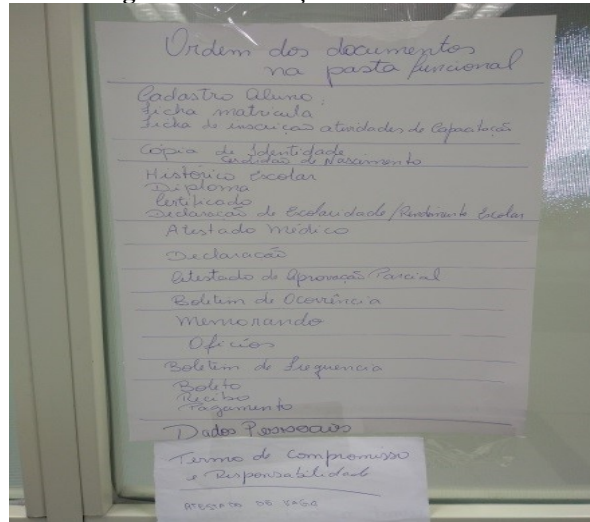 Ordem dos documentos
na pasta funcional
Cadastro Aluno
Ficha matrícula
Ficha de inscrição atividades de Capacitação
Cópia de Identidade
Certidão de Nascimento
Histórico Escolar
Diploma
Certificado
Declaração de Escolaridade/Rendimento Escolar
Atestado Médico
Declaração
Atestado de Aprovação Parcial
Boletim de Ocorrência
Memorando
Ofícios
Boletim de Frequencia
Boleto
Recibo
Pagamento
Dados Pessoais
Termo de Compromisso
e Responsabilidade
ATESTADO DE VAGA